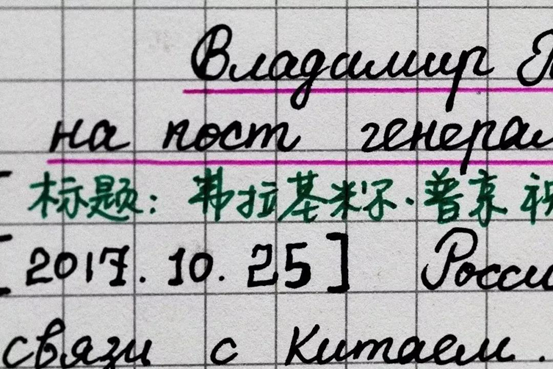 Владимир
на пост генерал
标题：弗拉基米尔·普京祝
[2017.10.25] Росси
связи с Китаем.